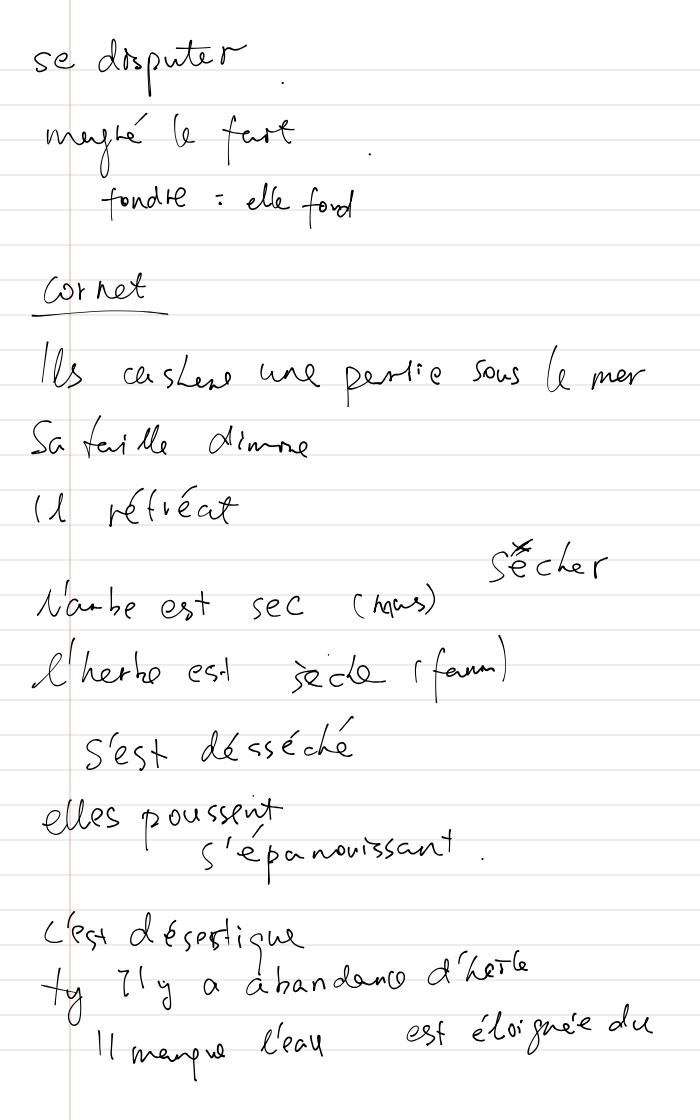 se disputer
malgré le fait
fondre : elle fond
cornet
Ils cachent une partie sous le mer
Sa taille diminue
Il rétréat
sécher
L'arbe est sec (mas)
l'herbe est sèche (fem)
s'est désséché
elles poussent
s'épanouissant.
c'est désertique
ty Il y a abandance d'herbe
Il manque l'eau est éloignée du